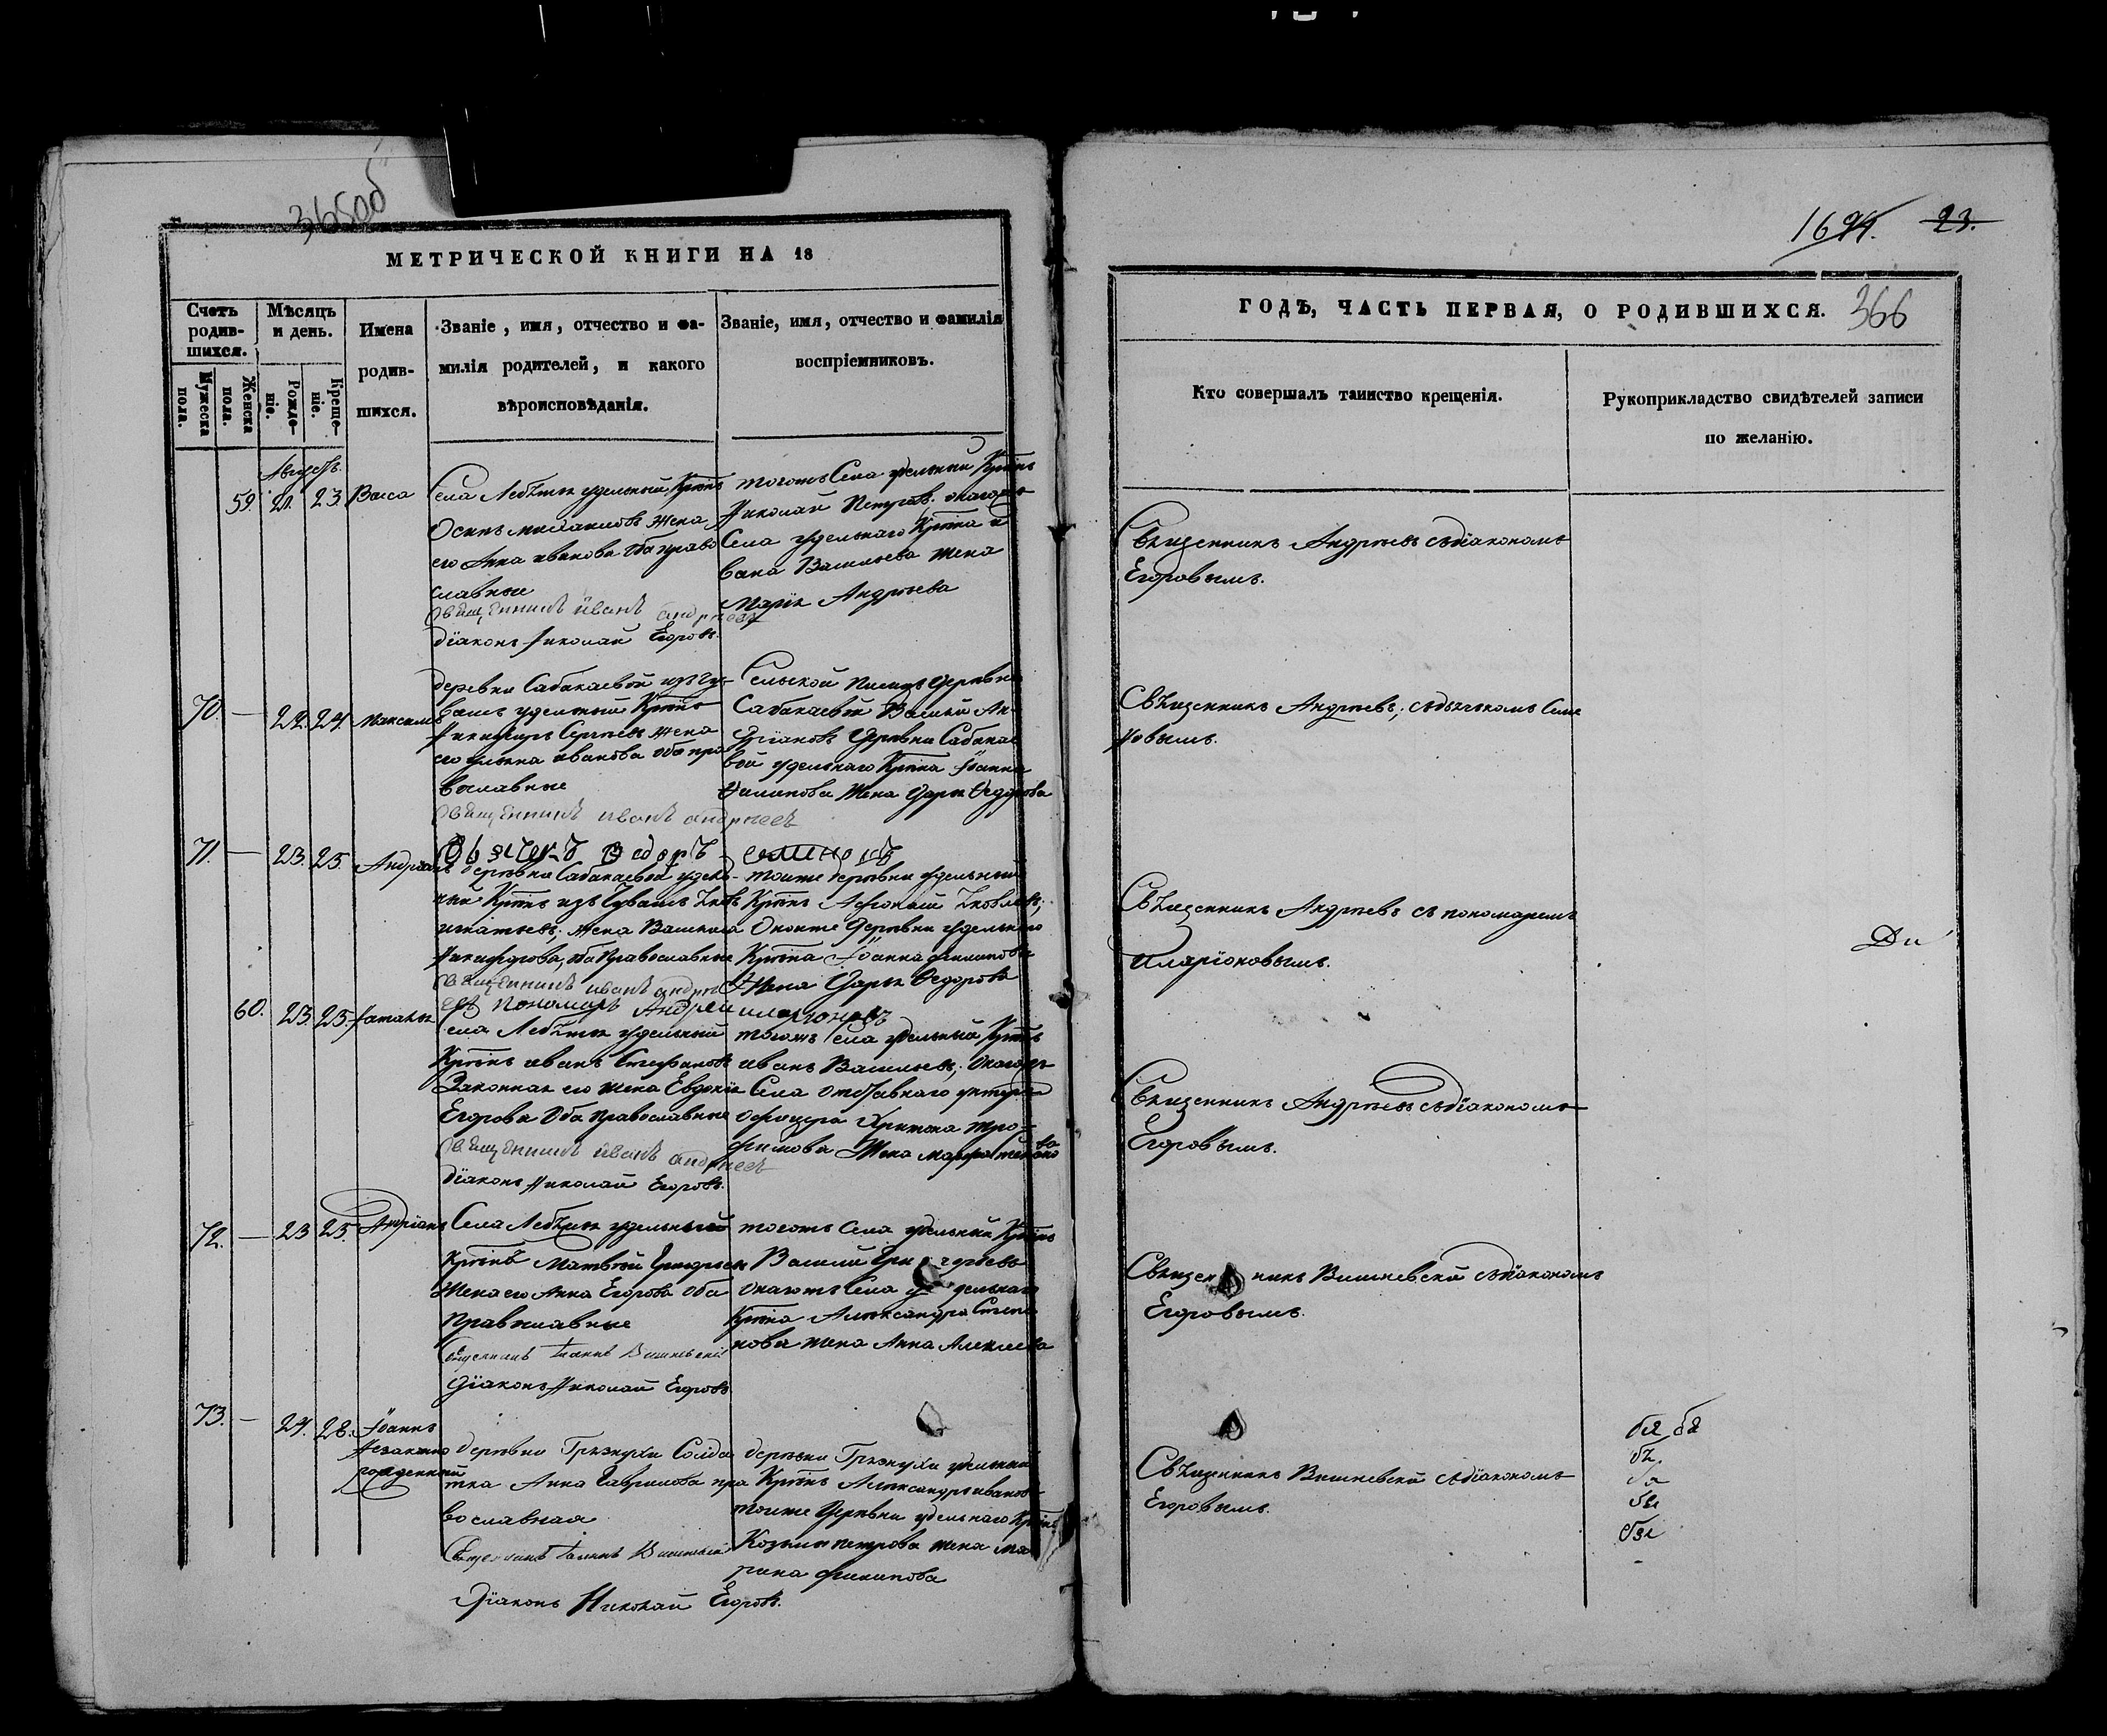 365об
МЕТРИЧЕСКОЙ КНИГИ НА 18
Счетъ родив-шихся.
Мѣсяцъ и день.
Имена родив-шихся.
Званіе, имя, отчество и фа-
милія родителей, и какого
вѣроисповѣданія.
Званіе, имя, отчество и фамилія
воспріемниковъ.
Мужеска пола.
Женска пола.
Рожде-ніе.
Креще-ніе.
Августъ
59. 21. 23. Васса
Села Лебяжья удельный Кртнъ
Осипъ Михаиловъ жена
его Анна иванова оба право
славные
Священникъ иванъ андреевъ
діаконъ Николай Егоровъ.
тогожъ Села удельный Кртнъ
Николай Петровъ. онагожъ
Села удельнаго Кртна и
вана Васильева жена
Марія Андреева
70. — 22. 24. Максимъ
деревни Сабакаевой изъ Чу-
вашъ удельный Крстнъ
Никифоръ Сергеевъ жена
его иванова оба пра
вославные
Священникъ иванъ андреевъ
Дьячекъ Федоръ семеновъ
Сельской Писарь деревни
Сабакаевой Василий Ан-
дріановъ деревни Сабакае
вой удельнаго Крстна Іоанна
Филипова жена Дарья Федорова
71. — 23. 25. Андреанъ
деревни Сабакаевой удель-
ный Крстнъ изъ Чувашъ Яковъ
игнатьевъ; жена Василиса
Никифорова, оба Православные
Священникъ иванъ андреевъ
Пономарь Андрей иларионовъ
тоиже деревни удельный
Крстнъ Афонасий Яковлевъ;
Оноиже Деревни удельнаго
Крстна Іоанна филипова
Жена Дарья Федорова
60. 23. 25. Наталья
Села Лебяжья удельный
Крстнъ иванъ Стефановъ
Законная его жена Евдокія
Егорова Оба православные
Священникъ иванъ андреевъ
діаконъ Николай Егоровъ.
тогожъ Села удельный Крстнъ
иванъ Васильевъ; Онагожъ
Села отставнаго унтеръ
офицера Тро-
фимова Жена Марфа
72. — 23 25. Андріанъ
Села Лебяжья удельный
Крстнъ Матвей Григорьевъ
Жена его Анна Егорова Оба
Православные
Священникъ Іоаннъ Вишневскій
Діаконъ Николай Егоровъ
тогожъ Села удельный Крстнъ
Василий Григорьевъ
Онагожъ Села удельнаго
Крстна Александра Степа
нова жена Анна Алексеева
73. — 24. 28. Іоаннъ
Незаконно
рожденный
деревни Грязнухи Солда
тка Анна Гаврилова пра
вославная
Священникъ Іоаннъ Вишневскій
Діаконъ Николай Егоровъ.
деревни Грязнухи удельный
Крстнъ Александръ ивановъ
тоиже Деревни удельнаго Крстна
Козьмы петрова жена Ма
рина филипова
23.
ГОДѢ, ЧАСТЬ ПЕРВАЯ, О РОДИВШИХСЯ.
366
Кто совершалъ таинство крещенія.
Рукоприкладство свидѣтелей записи
по желанію.
Священникъ Андреевъ съ діакономъ
Егоровымъ.
Священникъ Андреевъ; съ дьячкомъ Семе
новымъ.
Священникъ Андреевъ съ пономаремъ
иларіоновымъ.
Священникъ Андреевъ съ діакономъ
Егоровымъ.
Священникъ Вишневскій съ діакономъ
Егоровымъ.
Священникъ Вишневскій съ діакономъ
Егоровымъ.